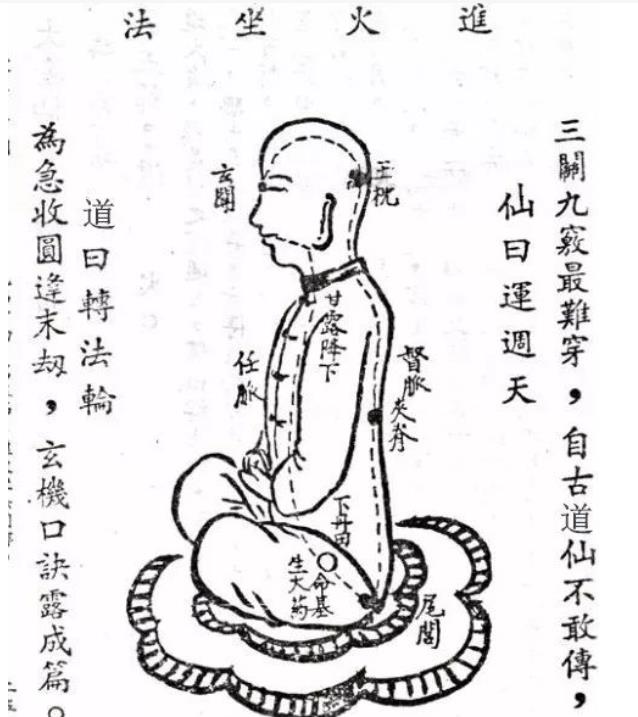 進火坐法
三關九竅最難穿，自古道仙不敢傳，
仙曰運週天
道曰轉法輪
為急收圓逢末劫，玄機口訣露成篇。
玄關
玉枕
甘露降下
任脈
督脈
夾脊
下丹田
命基
生大药
尾閭